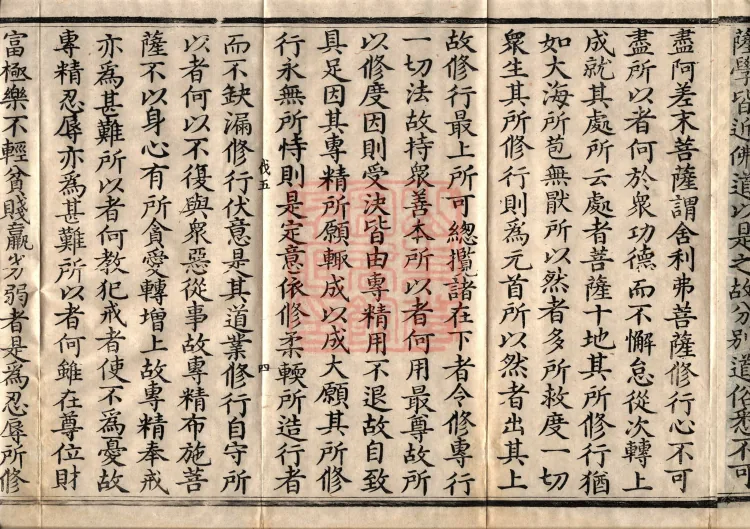 薩學皆逌佛道以是之故分別道俗悉不可
盡阿差末菩薩謂舍利弗菩薩修行心不可
盡所以者何於衆功德而不懈怠從次轉上
成就其處所云處者菩薩十地其所修行猶
如大海所苞無猒所以然者多所救度一切
衆生其所修行則為元首所以然者出其上
故修行最上所可總攬諸在下者令修專行
一切法故持衆善本所以者何用最尊故所
以修度因則受決皆由專精用不退故自致
具足因其專精所願輙成以成大願其所修
行永無所恃則是定意依修柔輭所造行者
伐五 四
而不缺漏修行伏意是其道業修行自守所
以者何以不復與衆惡從事故專精布施菩
薩不以身心有所貪愛轉增上故專精奉戒
亦為甚難所以者何教犯戒者使不為憂故
專精忍辱亦為甚難所以者何雖在尊位財
富極樂不輕貧賤羸劣弱者是為忍辱所修